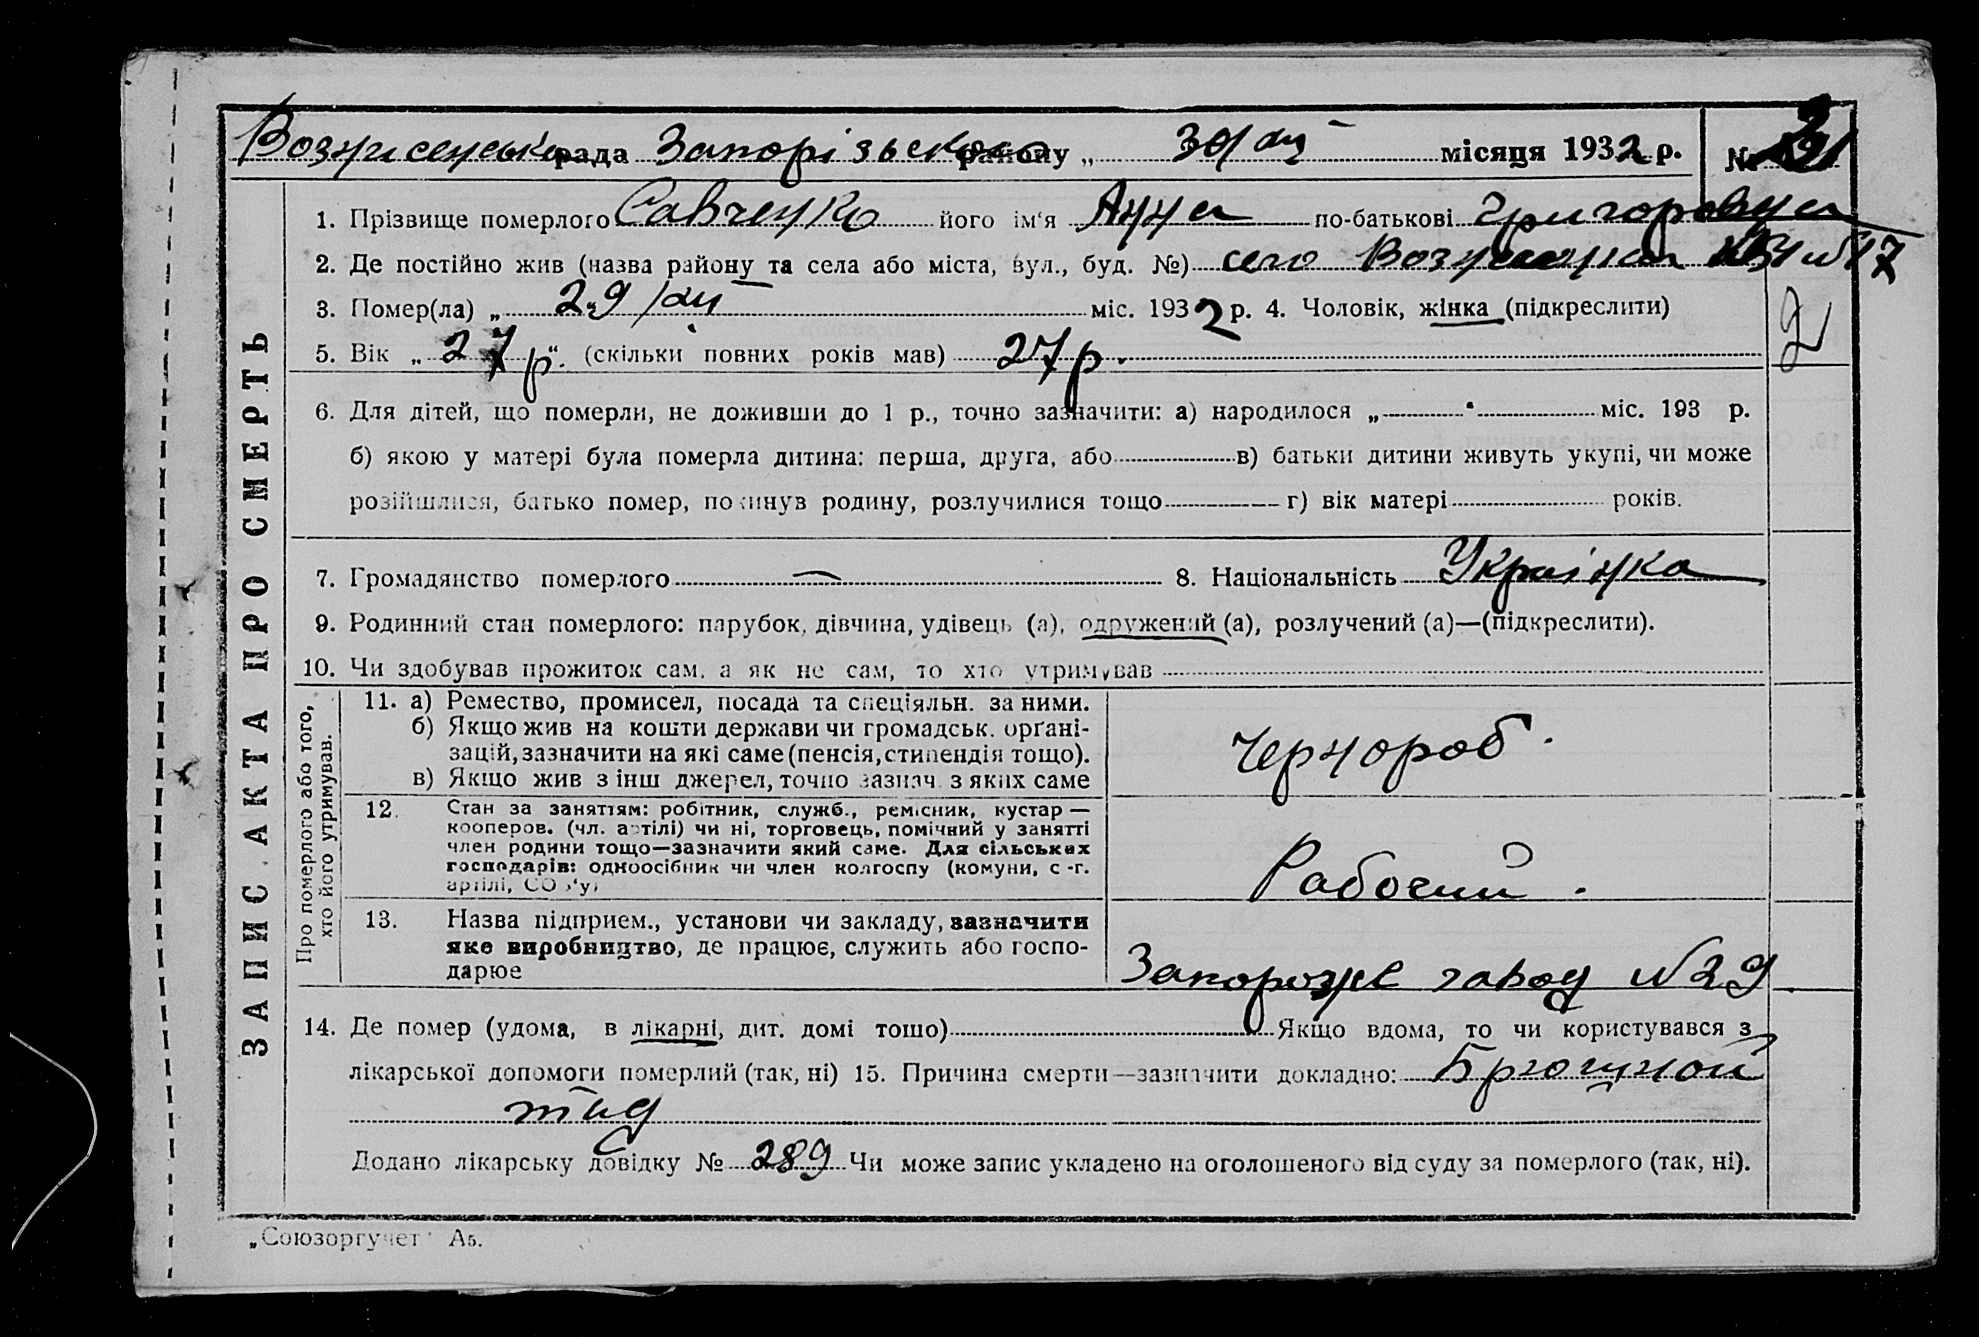 Вознисенська рада Запорізького району „ 30/XII місяця 1932 р. №
1. Прізвище померлого Савченко його ім'я Анна по-батькові Григоровна
2. Де постійно жив (назва району та села або міста, вул., буд. №) село
3. Помер(ла) „ 29/XII міс. 1932 р. 4. Чоловік, жінка (підкреслити)
5. Вік „ 27 р“. (скільки повних років мав) 27 р.
2
6. Для дітей, що померли, не доживши до 1 р., точно зазначити: а) народилося „ “ міс. 193 р.
б) якою у матері була померла дитина: перша, друга, або в) батьки дитини живуть укупі, чи може
розійшлися, батько помер, покинув родину, розлучилися тощо г) вік матері років.
7. Громадянство померлого — 8. Національність Українка
9. Родинний стан померлого: парубок, дівчина, удівець (а), одружений (а), розлучений (а)—(підкреслити).
10. Чи здобував прожиток сам, а як не сам, то хто утримував
ЗАПИС АКТА ПРО СМЕРТЬ
Про померлого або того,
хто його утримував.
11. а) Ремество, промисел, посада та спеціяльн. за ними.
б) Якщо жив на кошти держави чи громадськ. орґані-
зацій, зазначити на які саме (пенсія, стипендія тощо).
в) Якщо жив з інш джерел, точно зазнач. з яких саме
Чернороб.
12. Стан за заняттям: робітник, служб., ремісник, кустар —
кооперов. (чл. артілі) чи ні, торговець, помічний у занятті
член родини тощо—зазначити який саме. Для сільських
господарів: одноосібник чи член колгоспу (комуни, с.-г.
артілі, СОЗ'у)
Рабочий.
13. Назва підприєм., установи чи закладу, зазначити
яке виробництво, де працює, служить або госпо-
дарює
Запорожже завод №29
14. Де помер (удома, в лікарні, дит. домі тощо) Якщо вдома, то чи користувався з
лікарської допомоги померлий (так, ні) 15. Причина смерти—зазначити докладно: Брюшной
тиф
Додано лікарську довідку № 289 Чи може запис укладено на оголошеного від суду за померлого (так, ні).
„Союзоргучет“ А5.